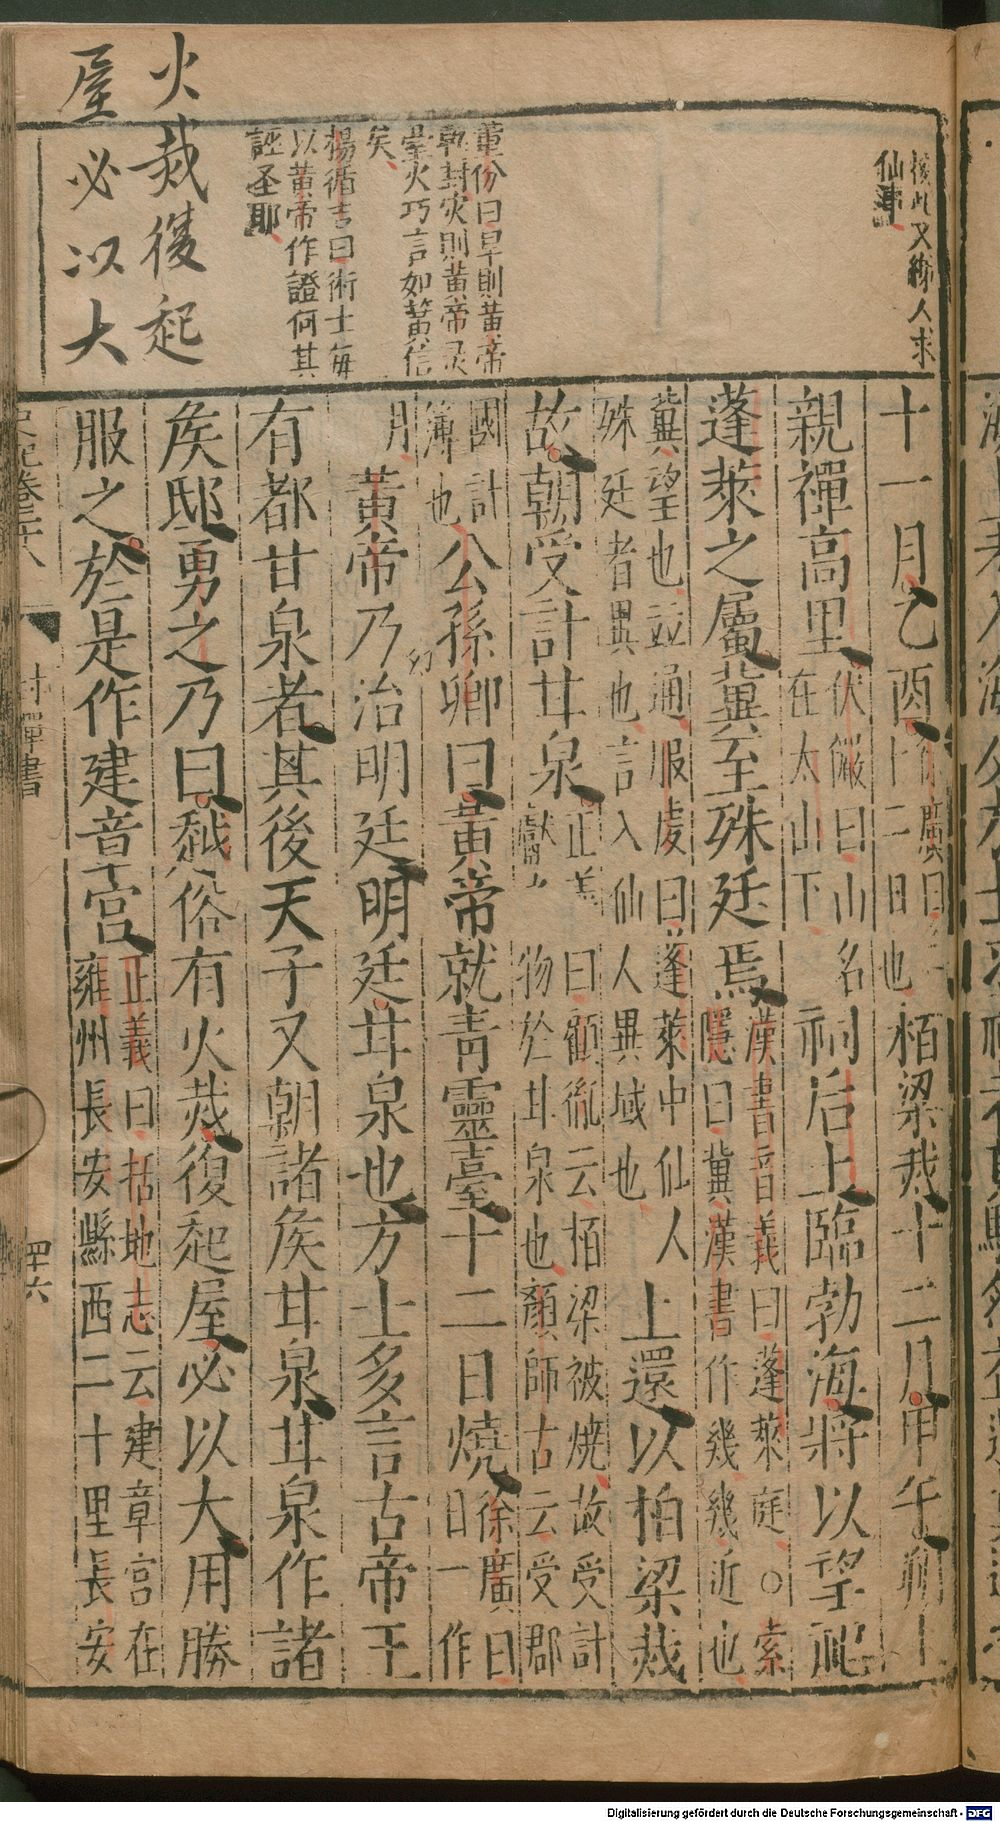 火烖復起
屋必以大
仙
按此又絫人求
董份曰旱則黃帝
乾封火則黃帝灵
臺火巧言如簧信
矣
楊循吉曰術士每
以黃帝作證何其
誣圣耶
十一月乙酉徐廣曰十二日也栢梁烖十二月甲午朔上
親禪高里伏儼曰山名在太山下祠后土臨勃海將以望祀
蓬萊之屬冀至殊廷焉漢書音義曰蓬萊庭○索隱曰冀漢書作幾幾近也
冀望也並通服虔曰蓬萊中仙人殊廷者異也言入仙人異域也上還以柏梁烖
故朝受計甘泉正義曰顧胤云栢梁被燒故受計獻之物於甘泉也顏師古云受郡
國計簿也公孫卿曰黃帝就青靈臺十二日燒徐廣曰日一作
月黃帝乃治明廷明廷甘泉也方士多言古帝王
有都甘泉者其後天子又朝諸矦甘泉甘泉作諸
矦邸勇之乃曰越俗有火烖復起屋必以大用勝
服之於是作建章宮正義曰括地志云建章宮在雍州長安縣西二十里長安
史記卷二十八
封禪書
四六
Digitalisierung gefördert durch die Deutsche Forschungsgemeinschaft - DFG